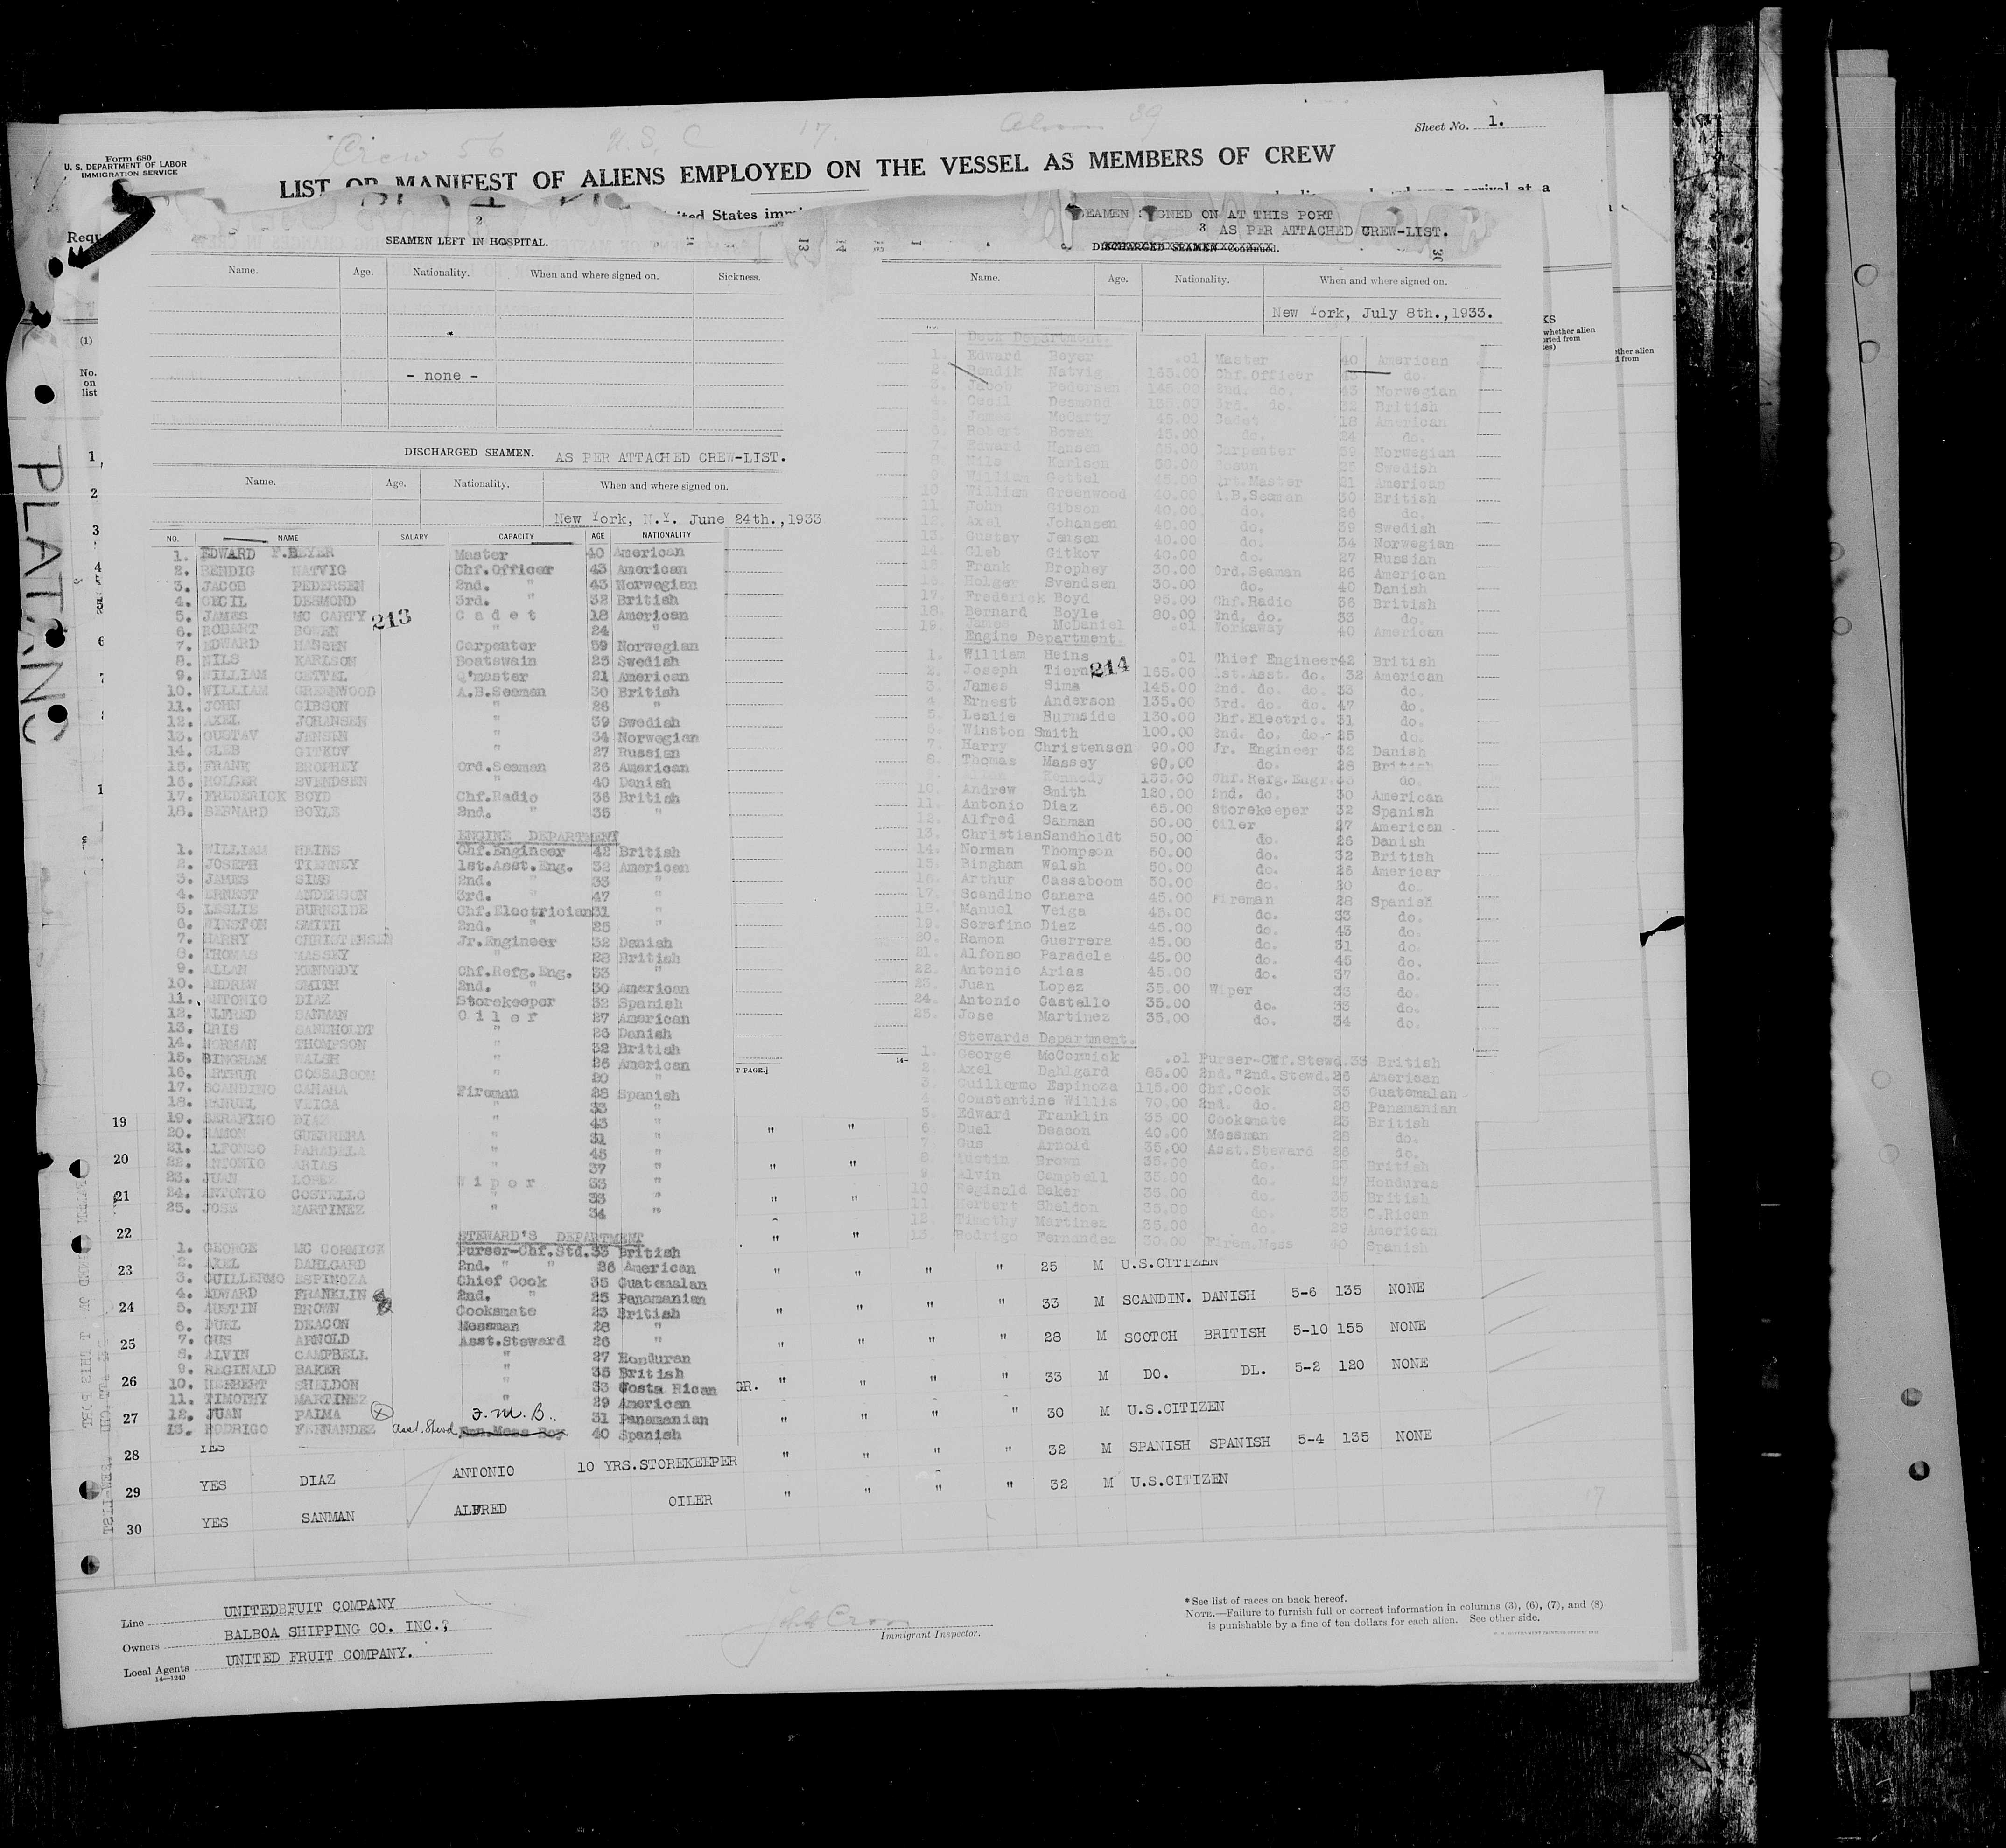 Crew 56 U.S.C 17. Aliens 39
Sheet No. 1.
Form 680
U. S. DEPARTMENT OF LABOR
IMMIGRATION SERVICE
LIST OR MANIFEST OF ALIENS EMPLOYED ON THE VESSEL AS MEMBERS OF CREW
PLATANO
2
SEAMEN LEFT IN HOSPITAL.
Name. Age. Nationality. When and where signed on. Sickness.
- none -
DISCHARGED SEAMEN. AS PER ATTACHED CREW-LIST.
Name. Age. Nationality. When and where signed on.
New York, N.Y. June 24th.,1933
NO. NAME SALARY CAPACITY AGE NATIONALITY
1. EDWARD F.BEYER Master 40 American
2. BENDIG NATVIG Chf.Officer 43 American
3. JACOB PEDERSEN 2nd. " 43 Norwegian
4. CECIL DESMOND 3rd. " 32 British
5. JAMES MC CARTY Cadet 18 American
213
6. ROBERT BOWEN " 24 "
7. EDWARD HANSEN Carpenter 59 Norwegian
8. NILS KARLSON Boatswain 25 Swedish
9. WILLIAM GETTEL Q'master 21 American
10. WILLIAM GREENWOOD A.B.Seaman 30 British
11. JOHN GIBSON " 26 "
12. AXEL JOHANSEN " 39 Swedish
13. GUSTAV JENSEN " 34 Norwegian
14. GLEB GITKOV " 27 Russian
15. FRANK BROPHEY Ord.Seaman 26 American
16. HOLGER SVENDSEN " 40 Danish
17. FREDERICK BOYD Chf.Radio 36 British
18. BERNARD BOYLE 2nd. " 35 "
ENGINE DEPARTMENT
1. WILLIAM HEINS Chf.Engineer 42 British
2. JOSEPH TIERNEY 1st.Asst.Eng. 32 American
3. JAMES SIMS 2nd. " 33 "
4. ERNEST ANDERSON 3rd. " 47 "
5. LESLIE BURNSIDE Chf.Electrician 31 "
6. WINSTON SMITH 2nd. " 25 "
7. HARRY CHRISTENSEN Jr.Engineer 32 Danish
8. THOMAS MASSEY " 28 British
9. ALLAN KENNEDY Chf.Refg.Eng. 33 "
10. ANDREW SMITH 2nd. " 30 American
11. ANTONIO DIAZ Storekeeper 32 Spanish
12. ALFRED SANMAN Oiler 27 American
13. CRIS SANDHOLDT " 26 Danish
14. NORMAN THOMPSON " 32 British
15. BINGHAM WALSH " 26 American
16. ARTHUR COSSABOOM " 20 "
17. SCANDINO CANARA Fireman 28 Spanish
18. MANUEL VEIGA " 33 "
19. SERAFINO DIAZ " 43 "
20. RAMON GUERRERA " 31 "
21. ALFONSO PARADELA " 45 "
22. ANTONIO ARIAS " 37 "
23. JUAN LOPEZ Wiper 33 "
24. ANTONIO COSTELLO " 33 "
25. JOSE MARTINEZ " 34 "
STEWARD'S DEPARTMENT
1. GEORGE MC CORMICK Purser-Chf.Std. 33 British
2. AXEL DAHLGARD 2nd. " " 26 American
3. GUILLERMO ESPINOZA Chief Cook 35 Guatemalan
4. EDWARD FRANKLIN 2nd. " 25 Panamanian
5. AUSTIN BROWN Cooksmate 23 British
6. DUEL DEACON Messman 28 "
7. GUS ARNOLD Asst.Steward 26 "
8. ALVIN CAMPBELL " 27 Honduran
9. REGINALD BAKER " 35 British
10. HERBERT SHELDON " 33 Costa Rican
11. TIMOTHY MARTINEZ " 29 American
12. JUAN PALMA F.M.B. 31 Panamanian
13. RODRIGO FERNANDEZ Asst.Stewd. Frn.Mess Boy 40 Spanish
SEAMEN SIGNED ON AT THIS PORT
3 AS PER ATTACHED CREW-LIST.
DISCHARGED SEAMEN Continued.
Name. Age. Nationality. When and where signed on.
New York, July 8th.,1933.
Deck Department.
1. Edward Beyer .01 Master 40 American
2. Bendik Natvig 165.00 Chf.Officer 43 do.
3. Jacob Pedersen 145.00 2nd. do. 43 Norwegian
4. Cecil Desmond 135.00 3rd. do. 32 British
5. James McCarty 45.00 Cadet 18 American
6. Robert Bowen 45.00 do. 24 do.
7. Edward Hansen 65.00 Carpenter 59 Norwegian
8. Nils Karlson 50.00 Bosun 25 Swedish
9. William Gettel 45.00 Qrt.Master 21 American
10 William Greenwood 40.00 A.B.Seaman 30 British
11 John Gibson 40.00 do. 26 do.
12. Axel Johansen 40.00 do. 39 Swedish
13. Gustav Jensen 40.00 do. 34 Norwegian
14. Gleb Gitkov 40.00 do. 27 Russian
15 Frank Brophey 30.00 Ord.Seaman 26 American
16 Holger Svendsen 30.00 do. 40 Danish
17 Frederick Boyd 95.00 Chf.Radio 36 British
18. Bernard Boyle 80.00 2nd. do. 33 do.
19. James McDaniel .01 Workaway 40 American
Engine Department.
1. William Heins .01 Chief Engineer 42 British
214
2. Joseph Tiern 165.00 1st.Asst. do. 32 American
3. James Sims 145.00 2nd. do. do. 33 do.
4 Ernest Anderson 135.00 3rd. do. do. 47 do.
5. Leslie Burnside 130.00 Chf.Electric. 31 do.
6. Winston Smith 100.00 2nd. do. do. 25 do.
7. Harry Christensen 90.00 Jr. Engineer 32 Danish
8. Thomas Massey 90.00 do. 28 British
9. Allan Kennedy 135.00 Chf.Refg.Engr. 33 do.
10. Andrew Smith 120.00 2nd. do. 30 American
11. Antonio Diaz 65.00 Storekeeper 32 Spanish
12. Alfred Sanman 50.00 Oiler 27 American
13. Christian Sandholdt 50.00 do. 26 Danish
14. Norman Thompson 50.00 do. 32 British
15. Bingham Walsh 50.00 do. 26 American
16. Arthur Cassaboom 50.00 do. 20 do.
17. Scandino Canara 45.00 Fireman 28 Spanish
18. Manuel Veiga 45.00 do. 33 do.
19. Serafino Diaz 45.00 do. 43 do.
20. Ramon Guerrera 45.00 do. 31 do.
21. Alfonso Paradela 45.00 do. 45 do.
22. Antonio Arias 45.00 do. 37 do.
23. Juan Lopez 35.00 Wiper 33 do.
24. Antonio Castello 35.00 do. 33 do.
25. Jose Martinez 35.00 do. 34 do.
Stewards Department.
1. George McCormick .01 Purser-Chf.Stewd. 33 British
2 Axel Dahlgard 85.00 2nd."2nd.Stewd. 26 American
3. Guillermo Espinoza 115.00 Chf.Cook 35 Guatemalan
4 Constantine Willis 70.00 2nd. do. 28 Panamanian
5. Edward Franklin 35.00 Cooksmate 23 British
6. Duel Deacon 40.00 Messman 28 do.
Gus Arnold 35.00 Asst.Steward 26 do.
8 Austin Brown 35.00 do. 23 British
9 Alvin Campbell 35.00 do. 27 Honduras
10 Reginald Baker 35.00 do. 35 British
11 Herbert Sheldon 35.00 do. 33 C.Rican
12 Timothy Martinez 35.00 do. 29 American
13 Rodrigo Fernandez 30.00 Firen.Mess 40 Spanish
19 " "
20 " "
21 " "
22 " "
23 " " " " 25 M U.S.CITIZEN
24 " " " " 33 M SCANDIN. DANISH 5-6 135 NONE
25 " " " " 28 M SCOTCH BRITISH 5-10 155 NONE
26 GR. " " " " 33 M DO. DL. 5-2 120 NONE
27 " " " " 30 M U.S.CITIZEN
28 YES DIAZ ANTONIO 10 YRS.STOREKEEPER " " " " 32 M SPANISH SPANISH 5-4 135 NONE
29 YES SANMAN ALFRED OILER " " " " 32 M U.S.CITIZEN
30
Line UNITED FRUIT COMPANY
Owners BALBOA SHIPPING CO. INC.,
Local Agents UNITED FRUIT COMPANY.
14—1240
Immigrant Inspector.
* See list of races on back hereof.
NOTE.—Failure to furnish full or correct information in columns (3), (6), (7), and (8)
is punishable by a fine of ten dollars for each alien. See other side.